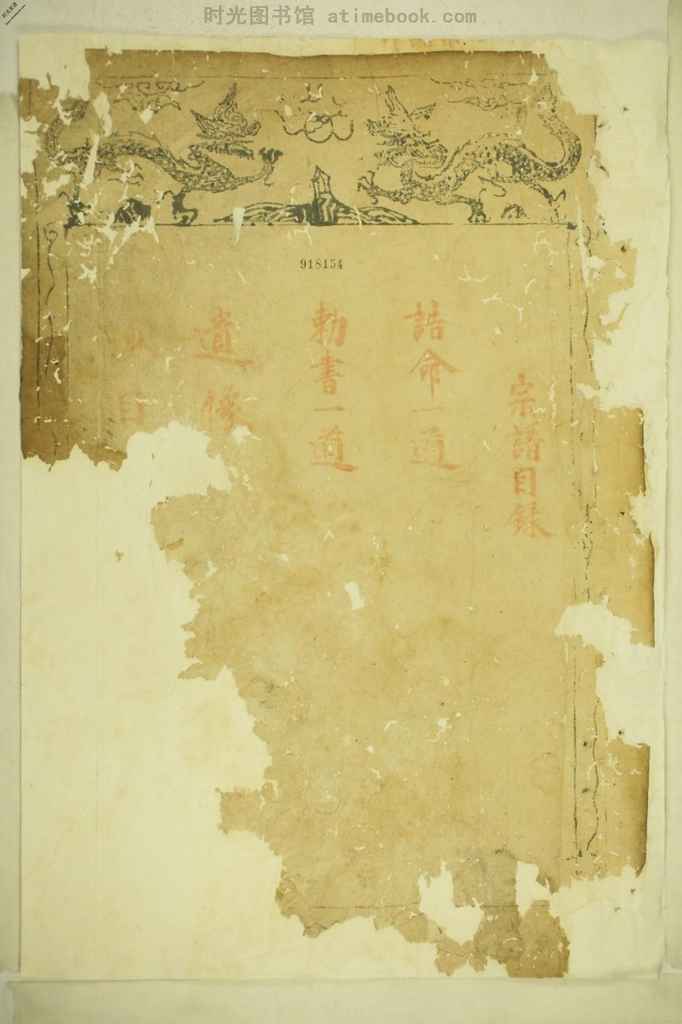 时光图书馆 atimebook.com
918154
宗譜目録
誥命一道
勅書一道
遺像
目